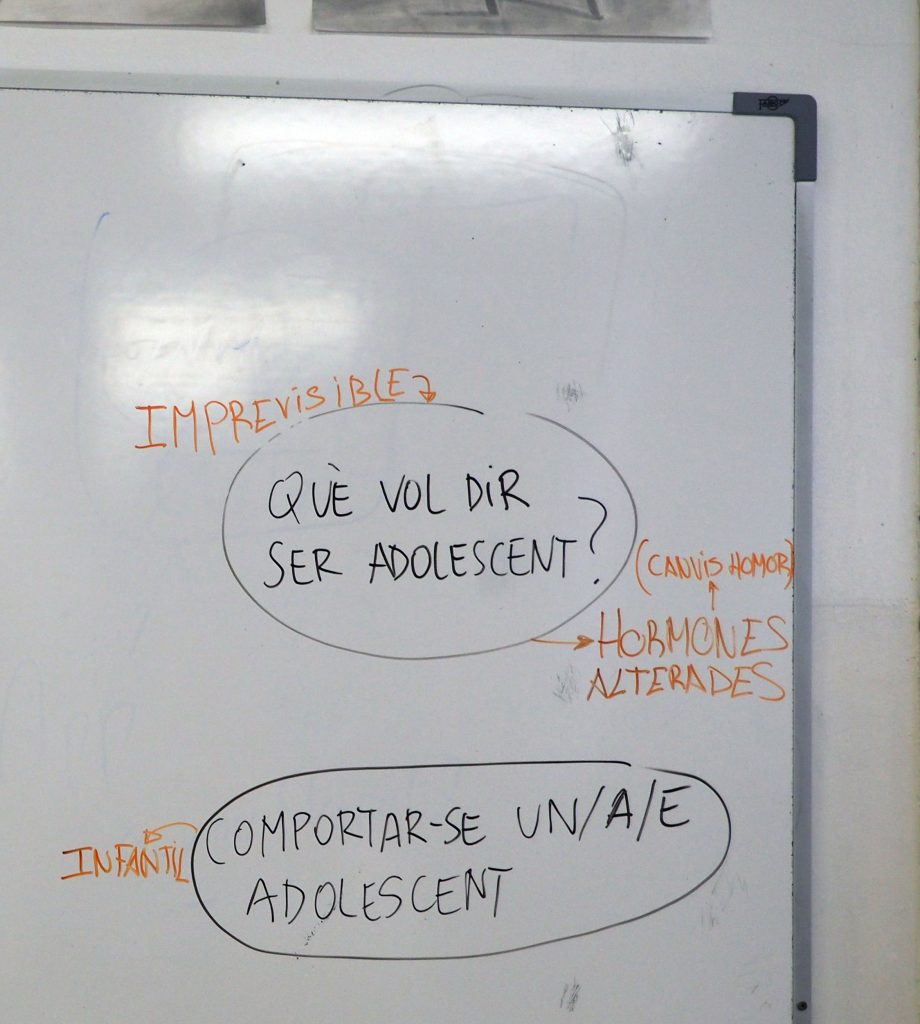 IMPREVISIBLE
QUÈ VOL DIR
SER ADOLESCENT?
(CANVIS HOMOR)
HORMONES
ALTERADES
COMPORTAR-SE UN/A/E
INFANTIL
ADOLESCENT